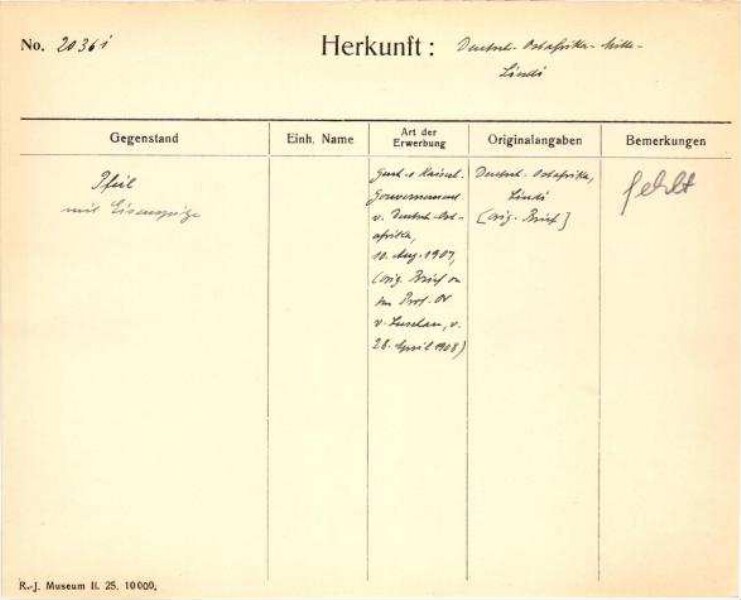 No. 2036i
Herkunft: Deutsch-Ostafrika-
Lindi
Gegenstand
Einh. Name
Art der
Erwerbung
Originalangaben
Bemerkungen
Pfeil
mit Eisenspitze
Kaiserl.
Gouvernement
v. Deutsch-Ost-
afrika,
10. Aug. 1907,
(orig. Brief
Prof. Dr
v. Luschan, v.
28. April 1908)
Deutsch-Ostafrika,
Lindi
[orig. Brief]
fehlt
R.-J. Museum II. 25. 10000.